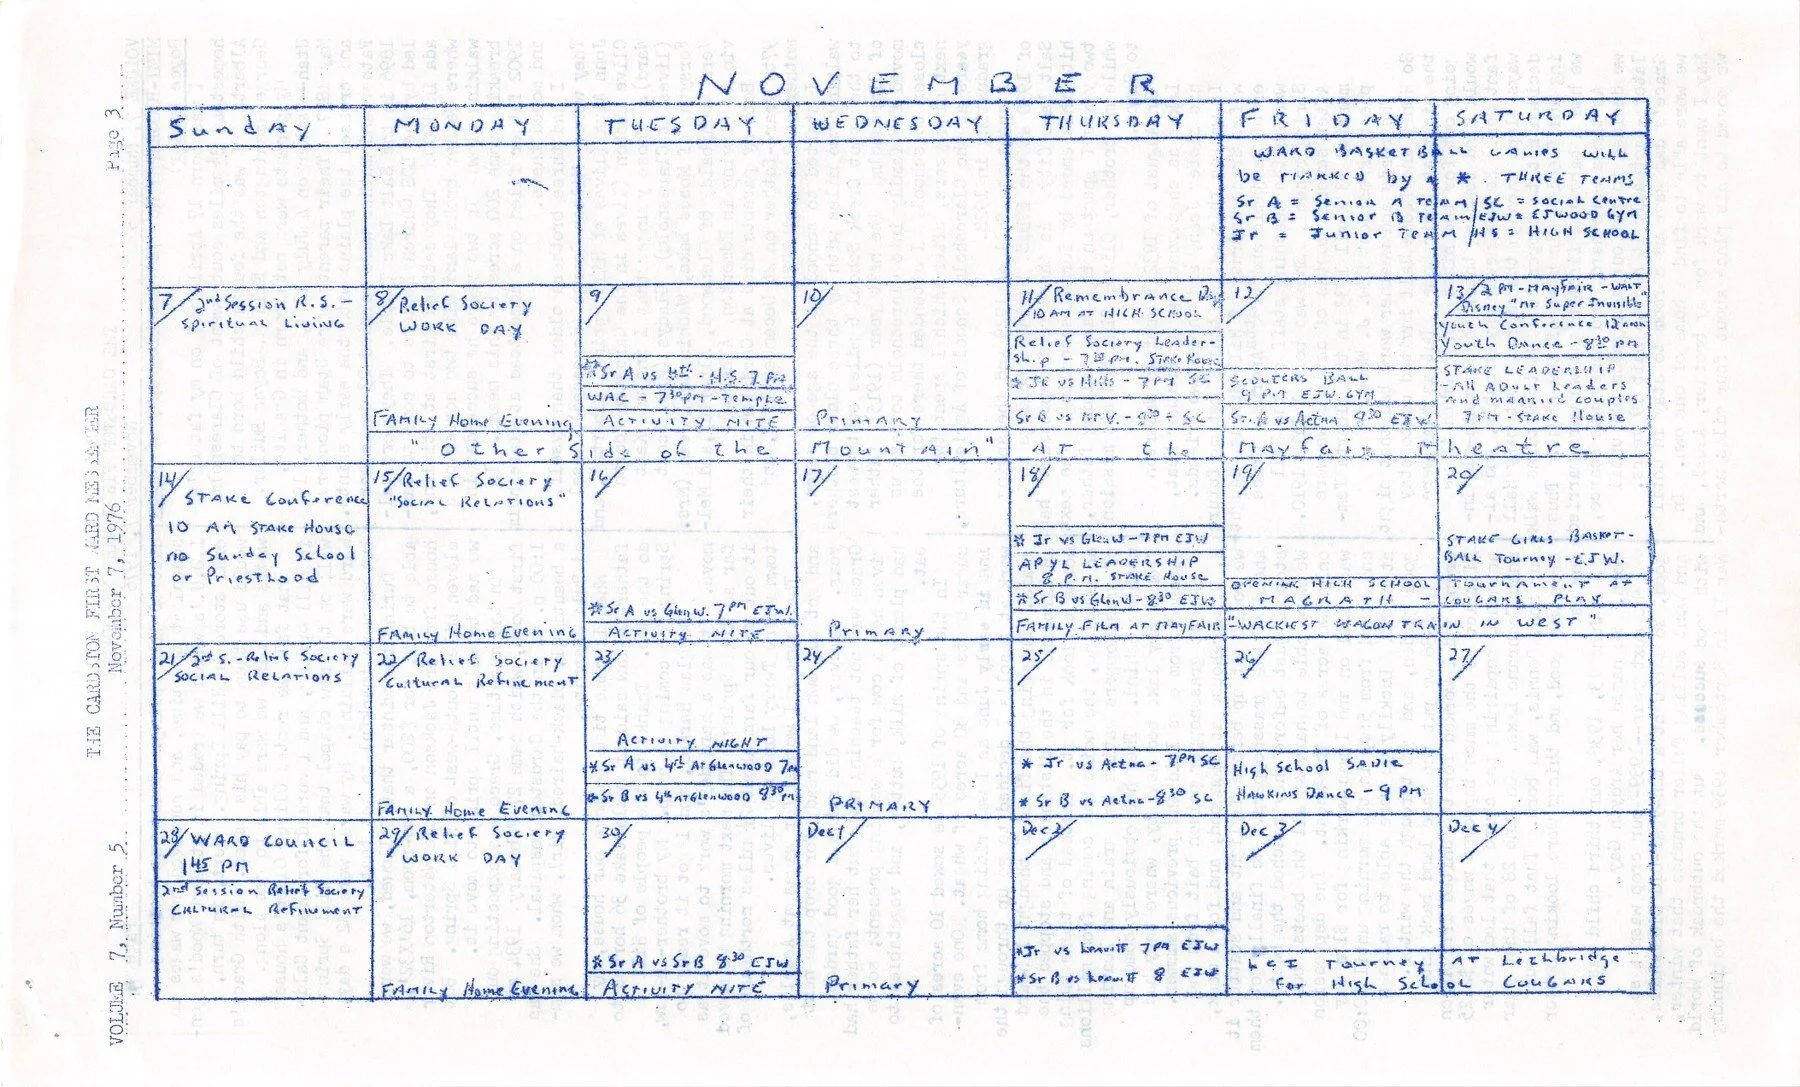 NOVEMBER
Page 3
THE CARDSTON FIRST WARD NEWSLETTER
November 7, 1976
VOLUME 7, Number 5
Sunday MONDAY TUESDAY WEDNESDAY THURSDAY FRIDAY SATURDAY
WARD BASKETBALL GAMES WILL
be MARKED by a *. THREE TEAMS
Sr A = Senior A TEAM/SC = Social Centre
Sr B = Senior B Team/EJW = EJWOOD GYM
Jr = Junior TEAM /HS = HIGH SCHOOL
7/ 2nd Session R.S. -
Spiritual Living
8/ Relief Society
WORK DAY
FAMILY Home Evening
9/
*Sr A vs 4th - H.S. 7 PM
WAC - 7 30 pm - Temple
ACTIVITY NITE
10/
Primary
11/ Remembrance Day
10 AM AT HIGH SCHOOL
Relief Society Leader-
ship - 7 30 pm. Stake House
* Jr vs Hills - 7 PM SC
Sr B vs - 8 30 - SC
12/
SCOUTERS BALL
9 P.M EJW. GYM
Sr. A vs Aetna 8 30 EJW.
13/ 2 PM - MAYFAIR - WALT
Disney "Mr Super Invisible"
Youth Conference 12 noon
Youth Dance - 8 30 PM
STAKE LEADERSHIP
- All Adult Leaders
and married couples
7 PM - Stake House
"Other Side of the Mountain" AT the Mayfair Theatre
14/
STAKE Conference
10 AM STAKE House
no Sunday School
or Priesthood
15/ Relief Society
"Social Relations"
FAMILY Home Evening
16/
*Sr A vs Glenw. 7 PM EJW.
ACTIVITY NITE
17/
Primary
18/
* Jr vs Glenw - 7 PM EJW
APYL LEADERSHIP
8 P.M. STAKE House
*Sr B vs Glenw - 8 30 EJW
19/
20/
STAKE GIRLS BASKET-
BALL Tourney - EJW.
OPENING HIGH SCHOOL TOURNAMENT AT
MAGRATH - COUGARS PLAY
FAMILY FILM AT MAYFAIR "WACKIEST WAGON TRAIN IN WEST"
21/ 2nd S. - Relief Society
SOCIAL RELATIONS
22/ Relief Society
Cultural Refinement
FAMILY Home Evening
23/
Activity NIGHT
*Sr A vs 4th At Glenwood 7 pm
*Sr B vs 4th AT Glenwood 8 30 pm
24/
PRIMARY
25/
* Jr vs Aetna - 7 PM SC
* Sr B vs Aetna - 8 30 SC
26/
High School SADIE
HAWKINS DANCE - 9 PM
27/
28/ WARD COUNCIL
1 45 PM
2nd Session Relief Society
CULTURAL Refinement
29/ Relief Society
WORK DAY
FAMILY Home Evening
30/
*Sr A vs Sr B 8 30 EJW
ACTIVITY NITE
Dec 1/
Primary
Dec 2/
*Jr vs Leavitt 7 PM EJW
*Sr B vs Leavitt 8 EJW
Dec 3/
Dec 4/
LCI Tourney AT Lethbridge
For High School COUGARS